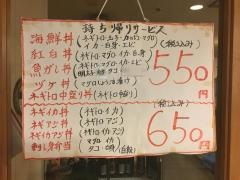 持ち帰りサービス
海鮮丼(ネギトロ・玉子・カットマグロ
イカ・白身・エビ)
紅白丼(ネギトロ・マグロ・イカ・白身)
魚がし丼(マグロ・イカ・エビ
明太子・鯛・タコ)
ヅケ丼(マグロしょうゆ漬け)
ネギトロ中盛り丼(ネギトロ中盛り)
(税込み)
550円
ネギイカ丼(ネギトロ・イカ)
ネギアジ丼(ネギトロ・アジ)
イカアジ丼(ネギトロ・イカアジ)
刺し身弁当(マグロ・イカ
タコ・
(税込み)
650円